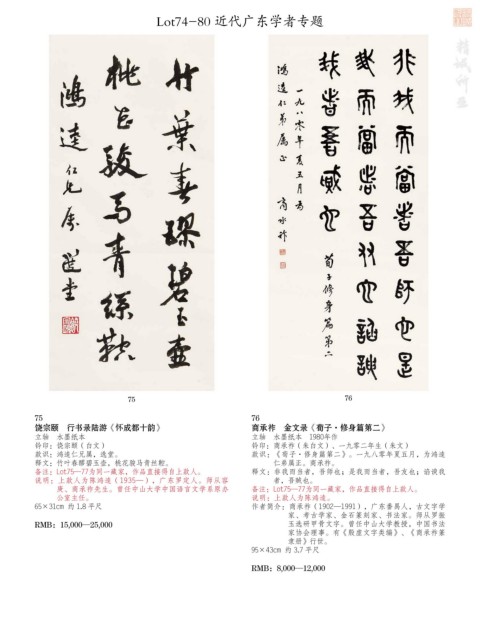 Lot74-80 近代广东学者专题
竹葉春醪碧玉壺
桃花駿馬青絲鞚
鴻達仁兄屬 選堂
非我而當者吾師也是
我而當者吾友也諂諛
我者吾賊也 荀子修身篇第二
一九八〇年夏五月为
鴻達仁弟属正 商承祚
75
76
75
饶宗颐 行书录陆游《怀成都十韵》
立轴 水墨纸本
钤印：饶宗颐（白文）
款识：鸿达仁兄属，选堂。
释文：竹叶春醪碧玉壶，桃花骏马青丝鞚。
备注：Lot75—77为同一藏家，作品直接得自上款人。
说明：上款人为陈鸿逵（1935—），广东罗定人。师从容庚、商承祚先生。曾任中山大学中国语言文学系原办公室主任。
65×31cm 约 1.8 平尺
RMB: 15,000—25,000
76
商承祚 金文录《荀子·修身篇第二》
立轴 水墨纸本 1980年作
钤印：商承祚（朱白文）、一九零二年生（朱文）
款识：《荀子·修身篇第二》。一九八零年夏五月，为鸿逵仁弟属正。商承祚。
释文：非我而当者，吾师也；是我而当者，吾友也；谄谀我者，吾贼也。
备注：Lot75—77为同一藏家，作品直接得自上款人。
说明：上款人为陈鸿逵。
作者简介：商承祚（1902—1991），广东番禺人，古文字学家、考古学家、金石篆刻家、书法家。师从罗振玉选研甲骨文字。曾任中山大学教授，中国书法家协会理事。有《殷虚文字类编》、《商承祚篆隶册》行世。
95×43cm 约 3.7 平尺
RMB: 8,000—12,000